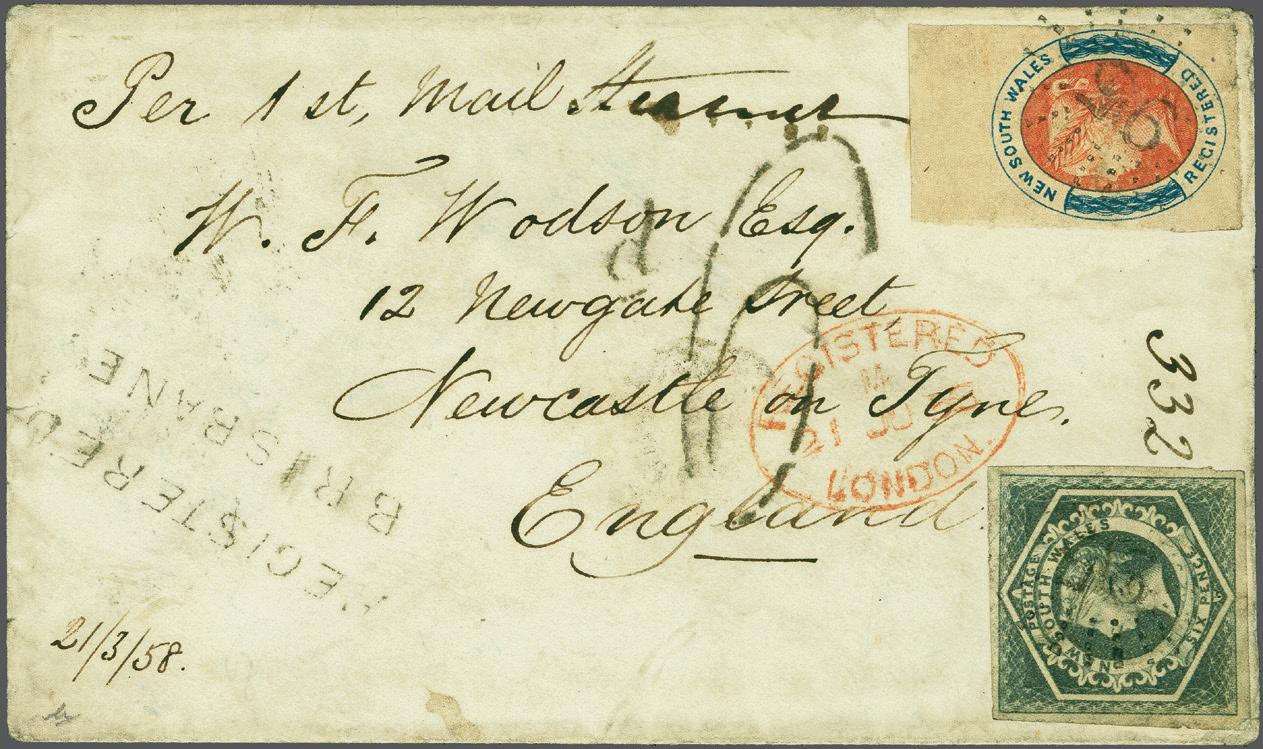 Per 1st, Mail Steamer
NEW SOUTH WALES
REGISTERED
W. F. Wodson Esq.
d
12 Newgate Street,
Newcastle on Tyne,
England
REGISTERED
LONDON.
332
REGISTERED
BRISBANE
21/3/58.
POSTAGE
NEW SOUTH WALES
SIX PENCE